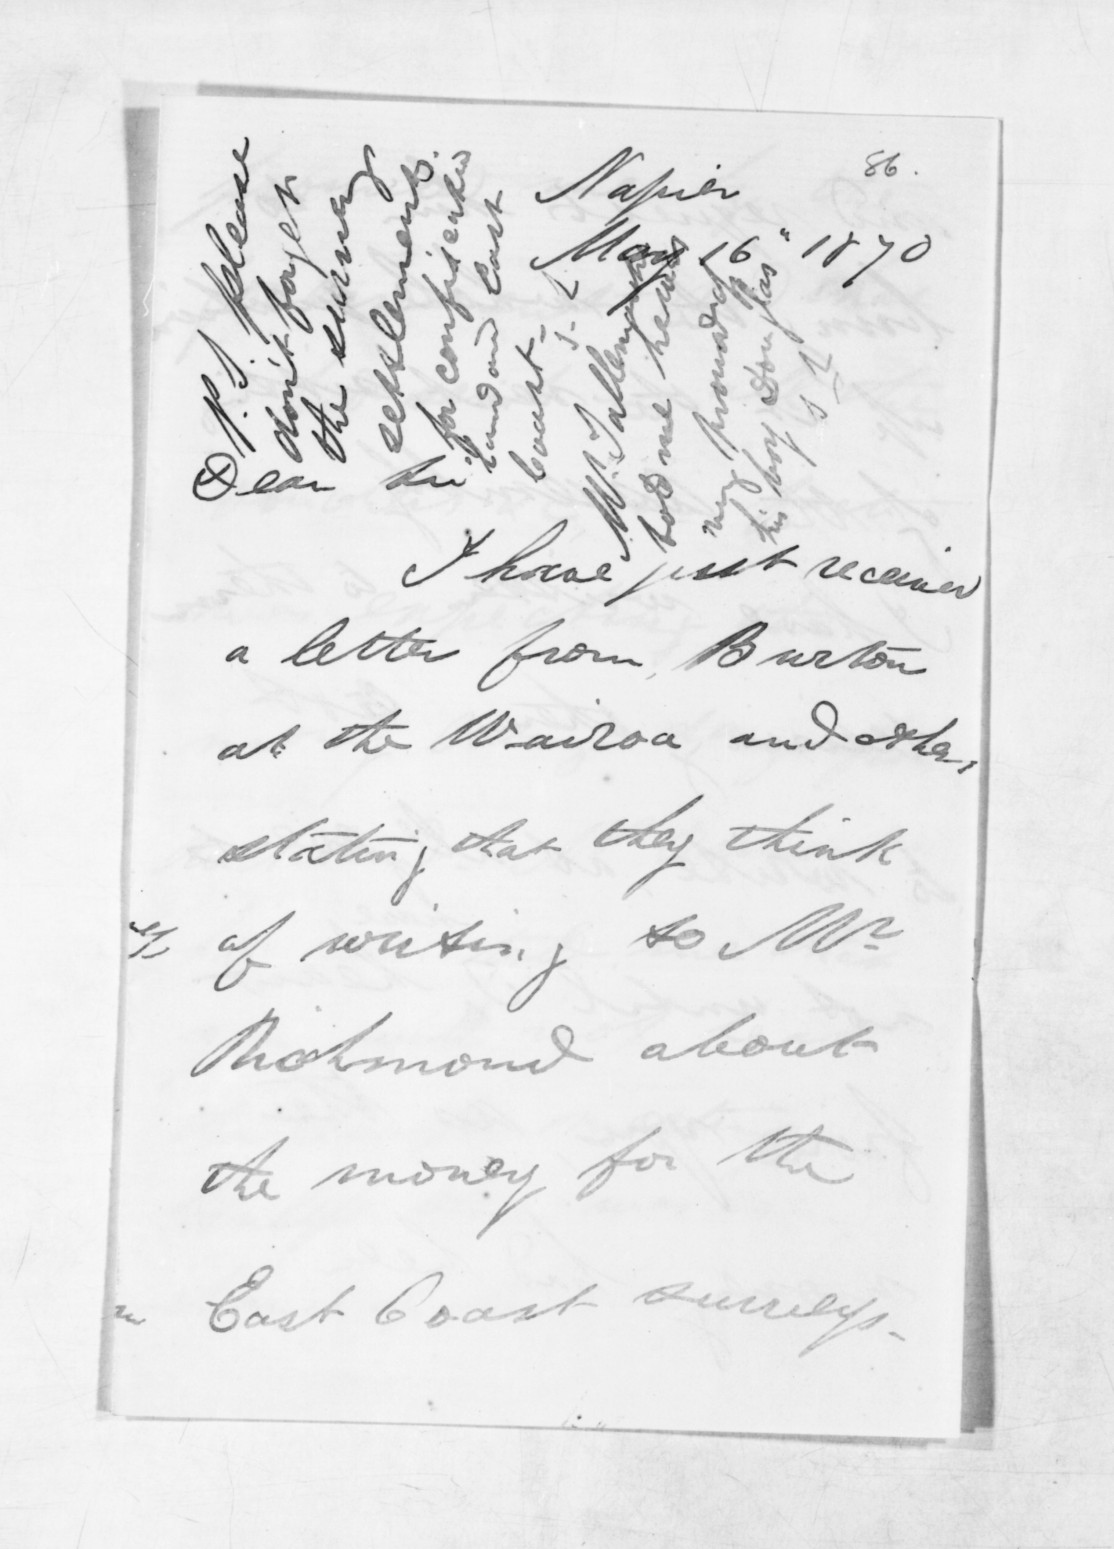 86.
Napier
May 16" 1870
Dear Sir
I have just received
a letter from Burton
at the Wairoa and others
stating that they think
of writing to Mr
Richmond about
the money for the
East Coast surveys_
P.S. please
don't forget
the survey
settlements
for confiscated
land and East
Coast_
S. L
Mr
told me he was
very proud of
his boy Douglas
S L